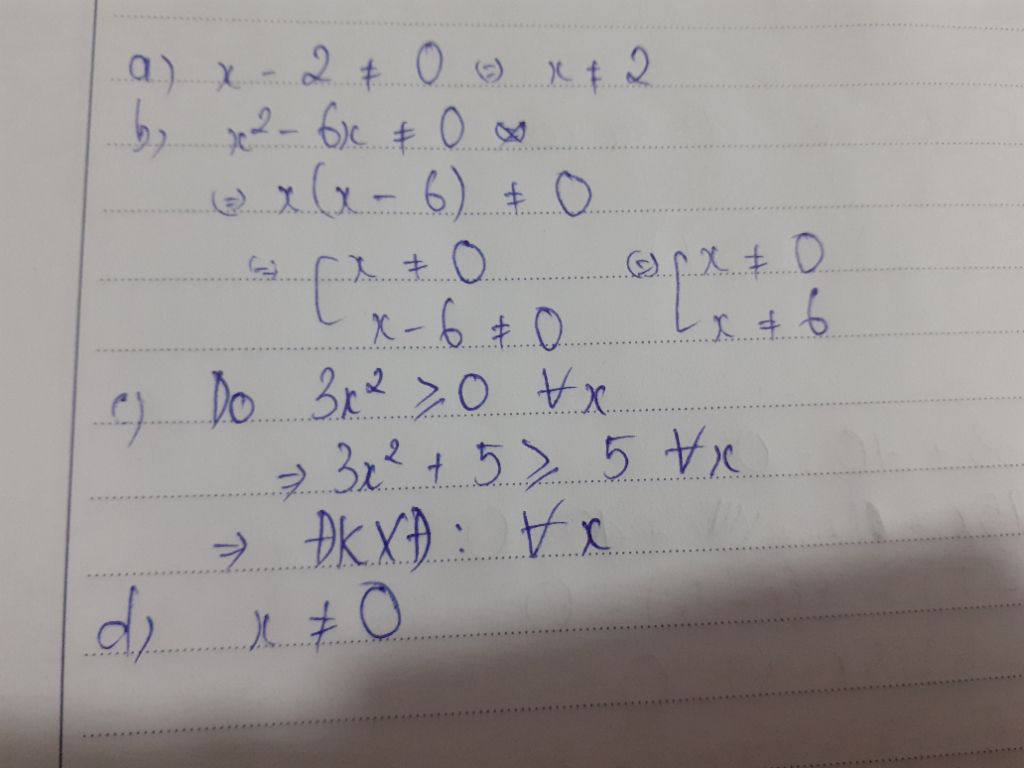 a) x - 2 ≠ 0 ⇔ x ≠ 2
b) x² - 6x ≠ 0
⇔ x(x - 6) ≠ 0
⇔ { x ≠ 0 ⇔ { x ≠ 0
x - 6 ≠ 0 x ≠ 6
c) Do 3x² ≥ 0 ∀x
⇒ 3x² + 5 ≥ 5 ∀x
⇒ ĐKXĐ: ∀x
d) x ≠ 0